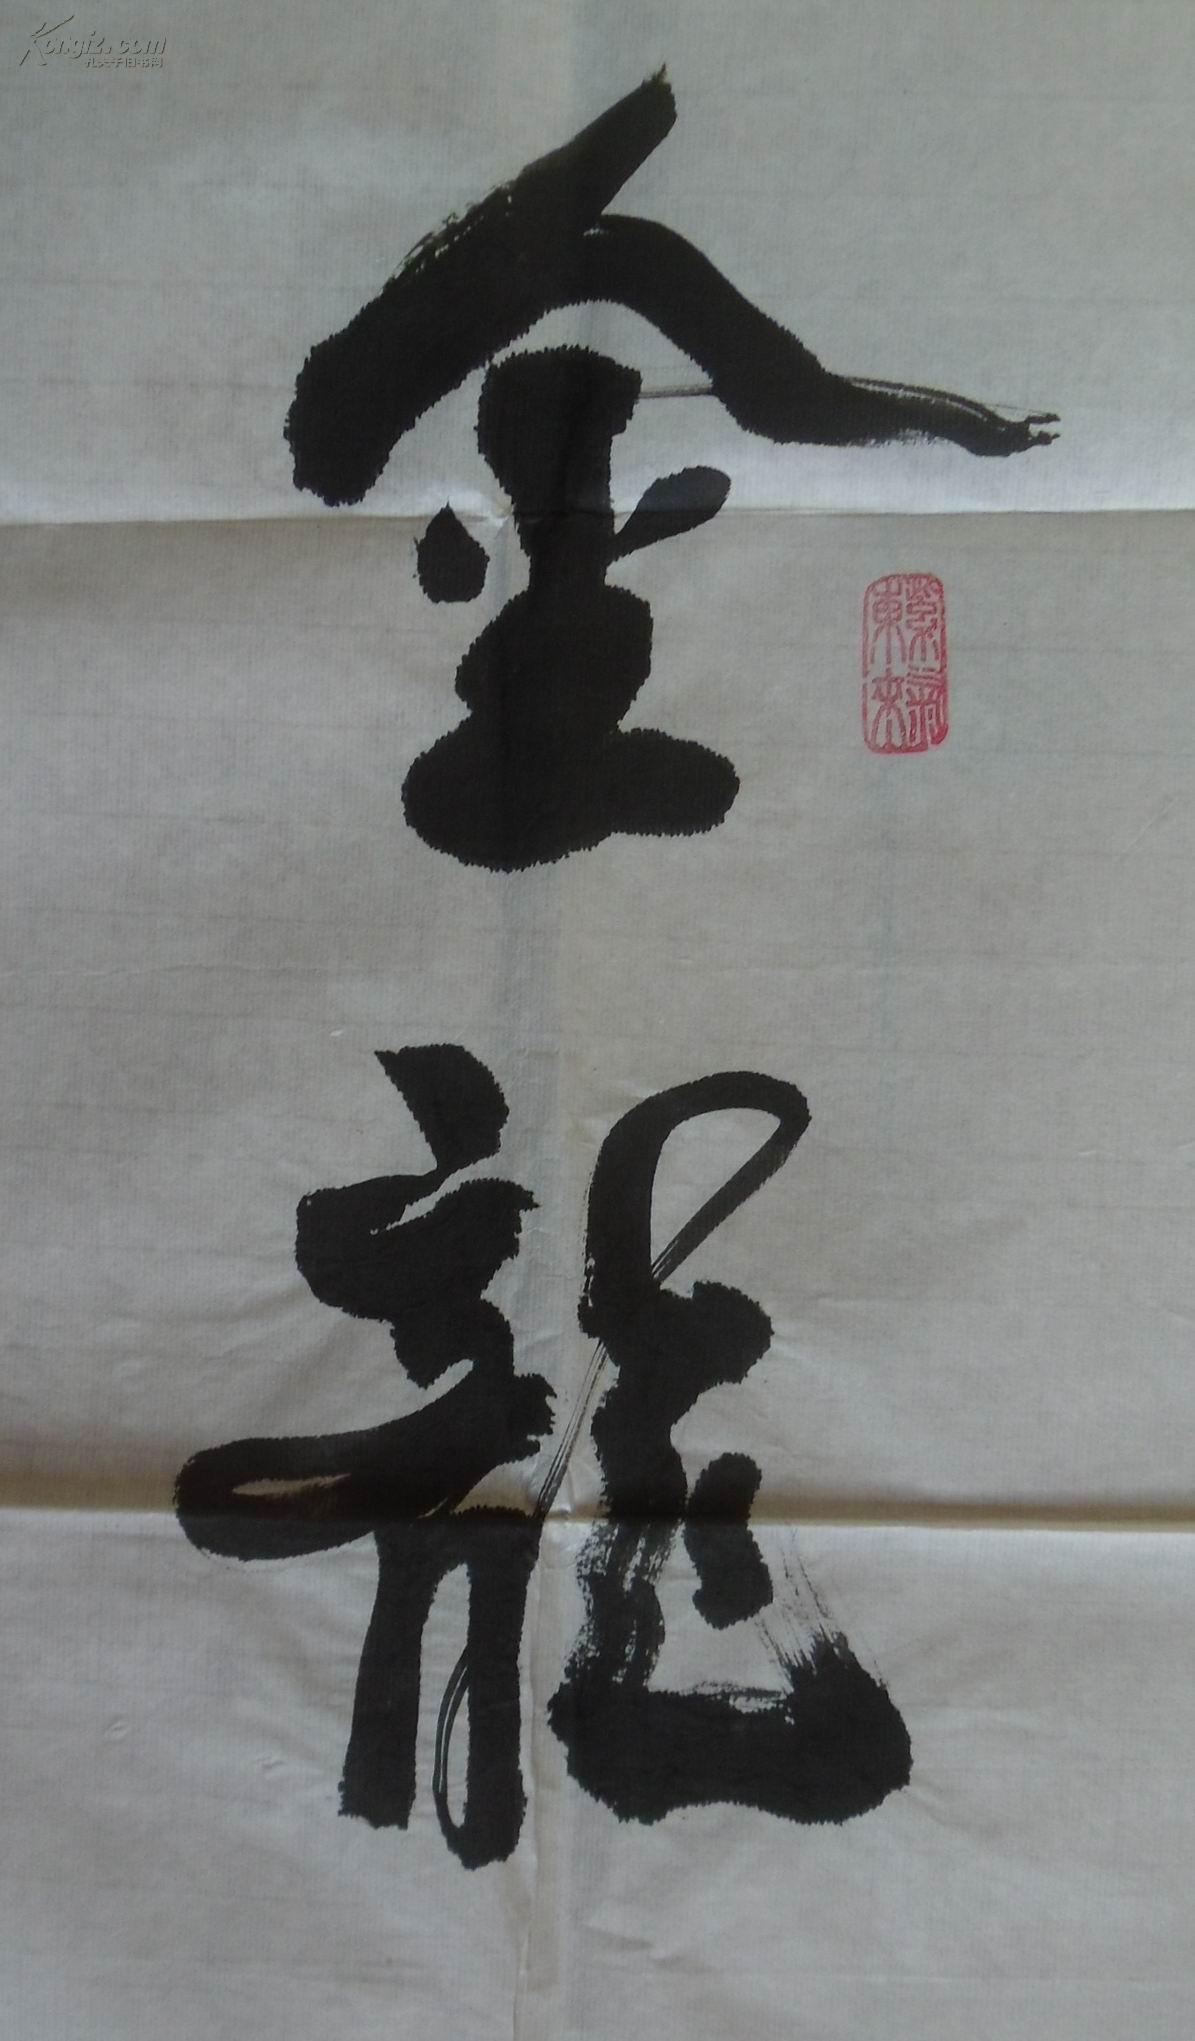 Kongfz.com
孔夫子旧书网
金龍
紫氣東來